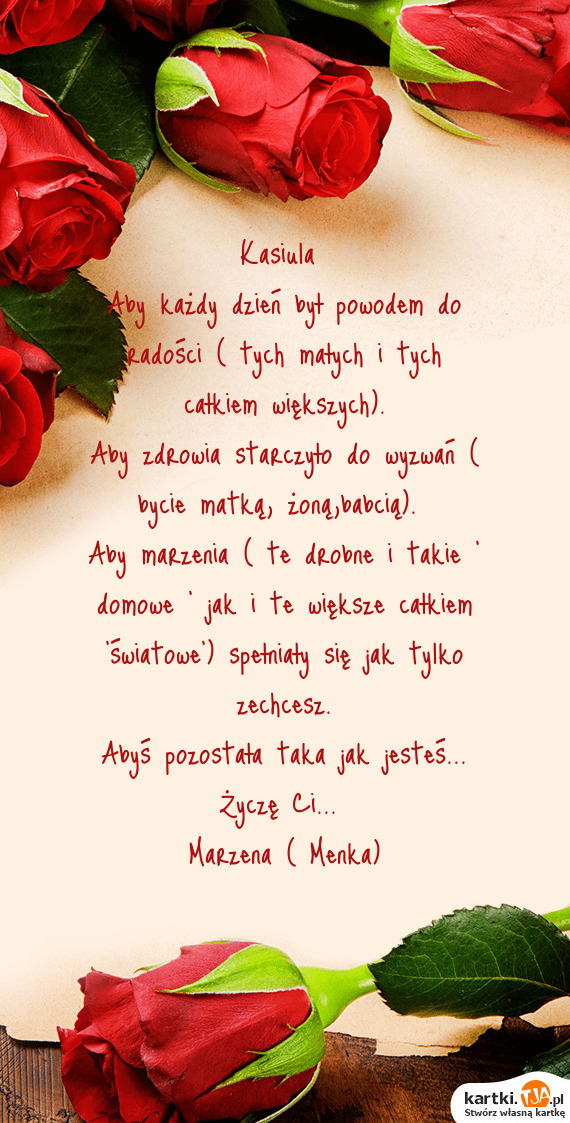 Kasiula
Aby każdy dzień był powodem do
radości ( tych małych i tych
całkiem większych).
Aby zdrowia starczyło do wyzwań (
bycie matką, żoną,babcią).
Aby marzenia ( te drobne i takie "
domowe " jak i te większe całkiem
"światowe") spełniały się jak tylko
zechcesz.
Abyś pozostała taka jak jesteś...
Życzę Ci...
Marzena ( Menka)
kartki.TJA.pl
Stwórz własną kartkę